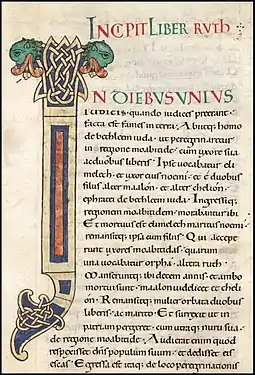 INCIPIT LIBER RUTH
IN DIEBUS UNIUS
IUDICIS · quando iudices preerant ·
facta est fames in terra; Abiitq; homo
de bethleem iuda · ut peregrinaretur
in regione moabitide · cum uxore sua
ac duobus liberis; Ipse uocabatur eli
melech · et uxor eius noemi · et e duobus
filius alter maalon · et alter chelion ·
ephratei de bethleem iuda · Ingressiq;
regionem moabitidem · morabantur ibi
Et mortuus est elimelech maritus noemi ·
remansitq; ipsa cum filiis · Qui accepe
runt uxores moabitidas · quarum
una uocabatur orpha · altera ruth ·
Manseruntq; ibi decem annis · et ambo
mortui sunt · maalon uidelicet et cheli
on · Remansitq; mulier orbata duobus
liberis · ac marito · Et surgeret ut in
patriam pergeret cum utraq; nuru sua ·
de regione moabitide · Audierat enim quod
respexisset dns populum suum · et dedisset eis
escas · Egressa est itaq; de loco peregrinationis